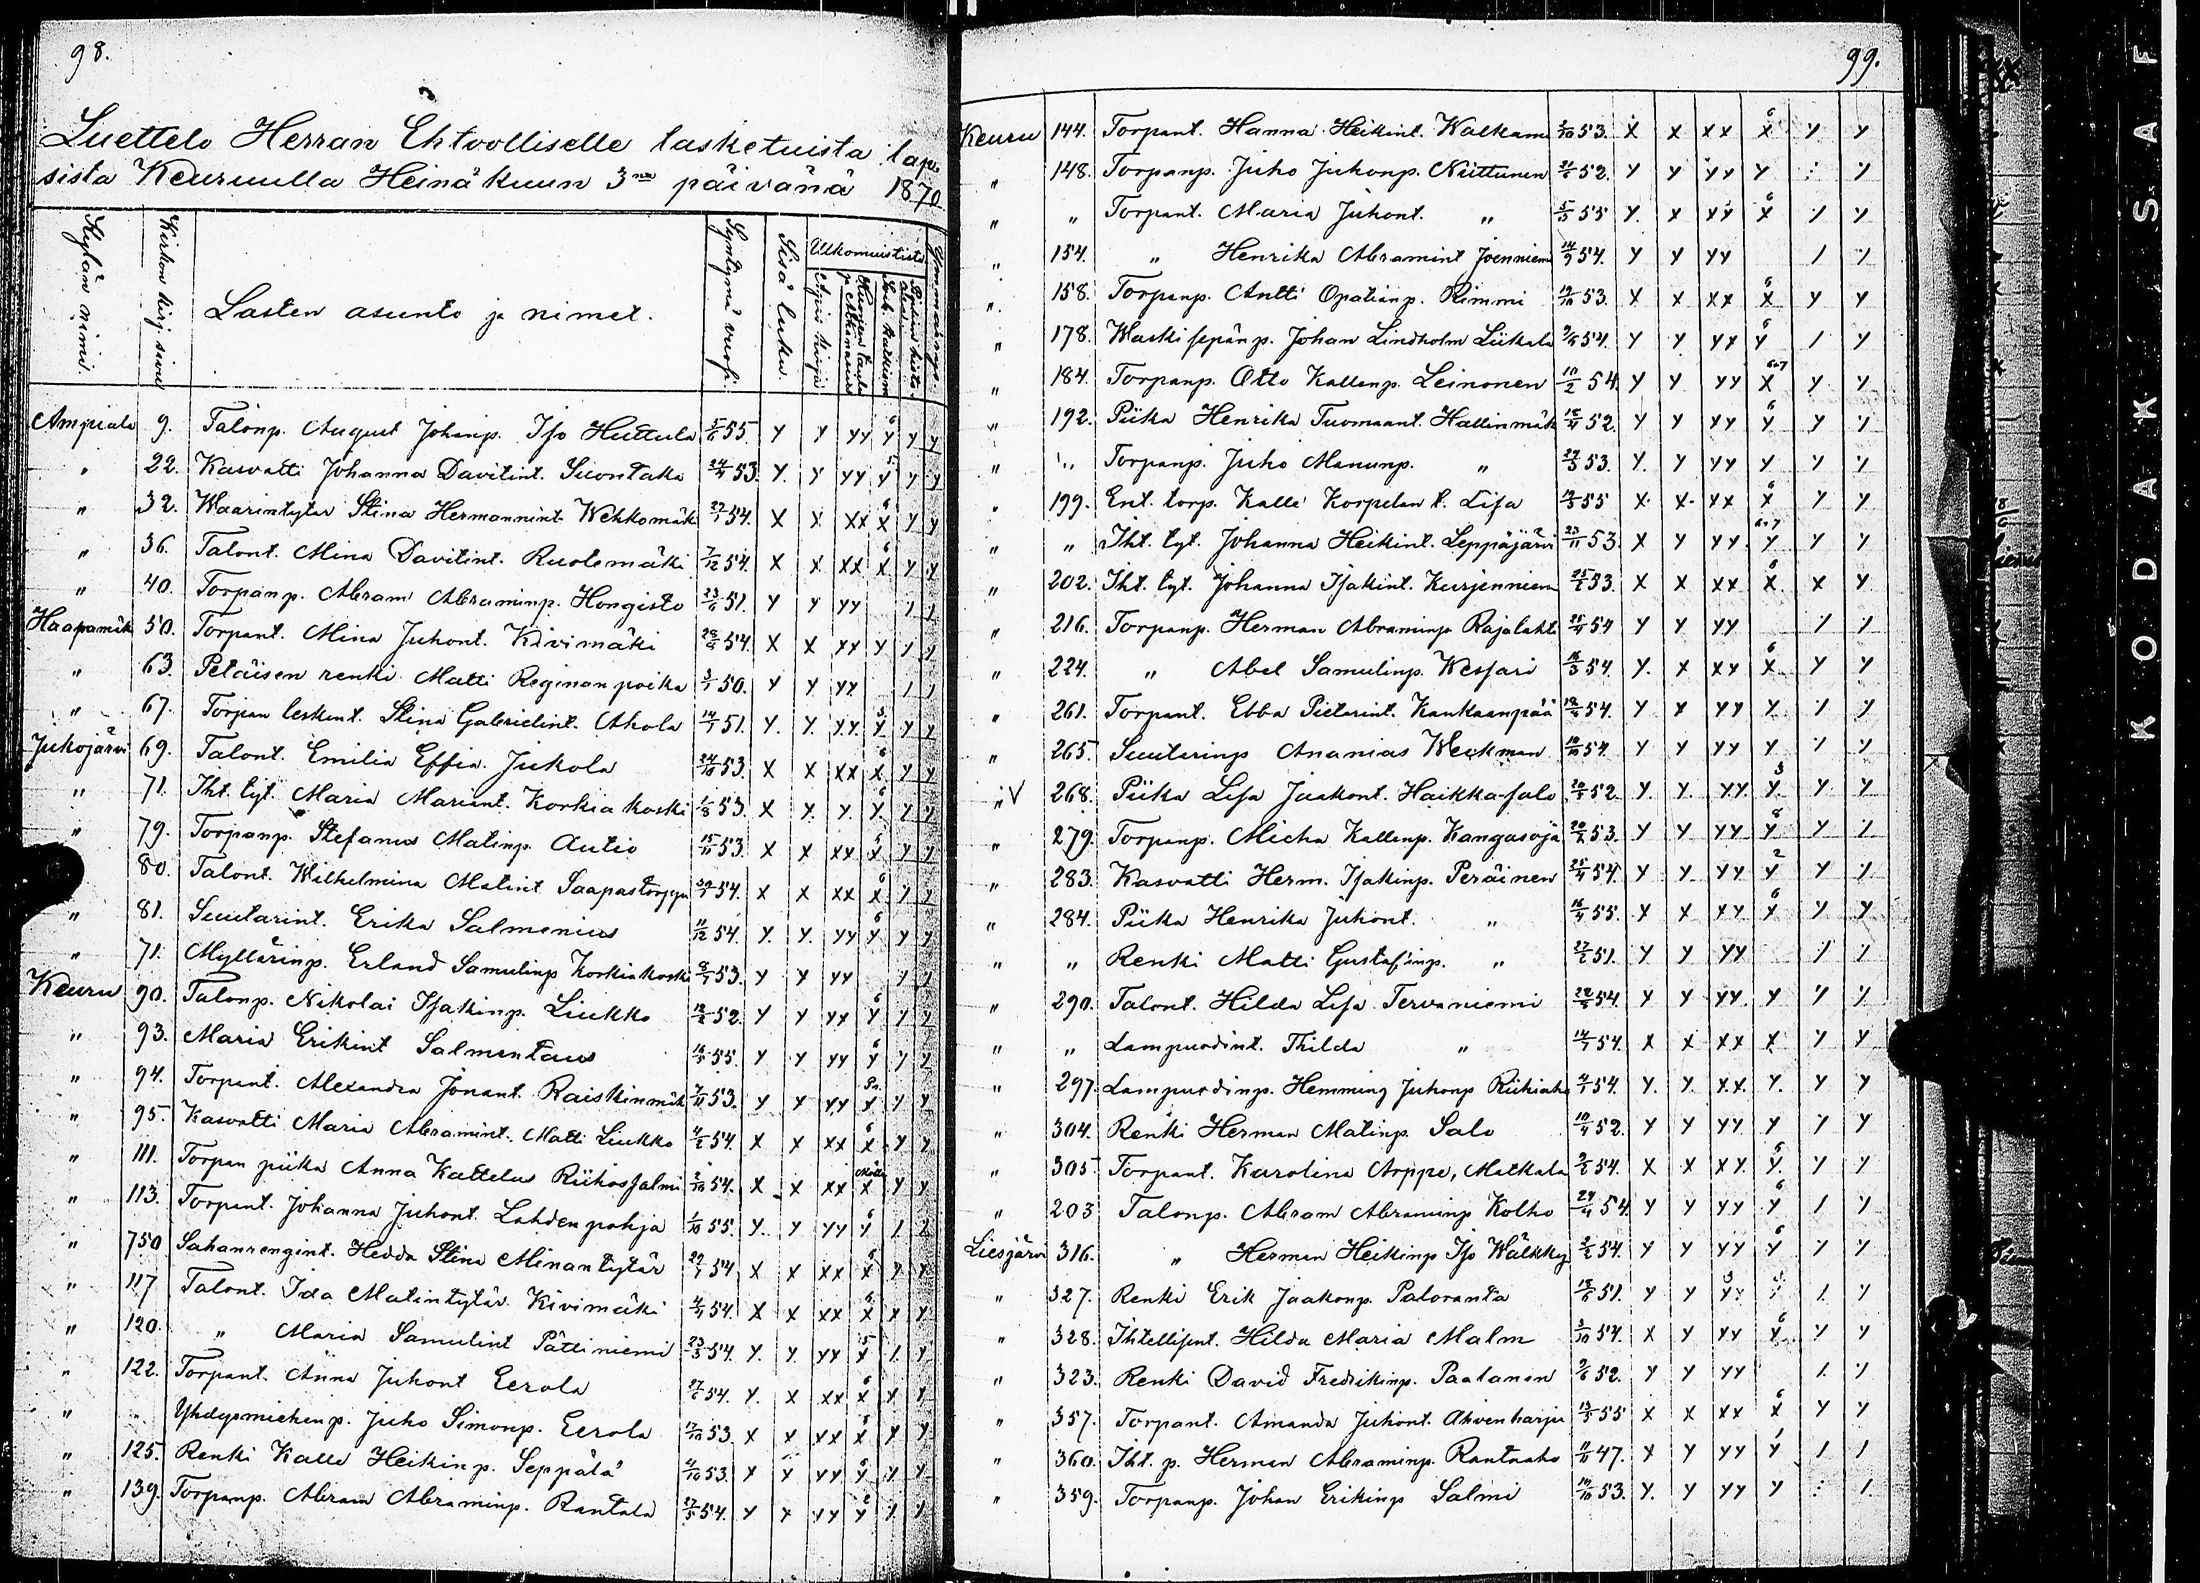 98.
Luettelo Herran Ehtoolliselle lasketuista lap-
sista Keuruulla Heinäkuun 3na päivänä 1870.
Kylän nimi. Kirkon kirj. sivu Lasten asunto ja nimet. Syntymä vuosi. Sisä luku. Ulkomuistista Ymmärrys.
Ampiala 9. Talonp. August Johanp. Iso Huttula 5/6 55 y y yy 6 y y y
" 22. Kasvatti Johanna Davitint. Suontaka 53. y. y yy 5 y y y
" 32. Waarintytär Stina Hermannint. Wehkomäki 54. x x xx 6 x y y
" 36. Talont. Mina Davitint. Ruolemäki 7/12 54. x x xx 6 x y y
" 40. Torpanp. Abram Abraminp. Hongisto 23/6 51. y y yy 1 1
Haapamäk 50. Torpant. Mina Juhont. Kivimäki 54. x x yy y 1 y
" 63. Petäisen renki Matti Reginan poika 50. y y yy 1 1
" 67. Torpan leskent. Stina Gabrielint. Ahola 51. y. y. yy. y y y
Jukojärvi 69. Talont. Emilia Effia. Jukola 24/10 53. x x xx 6 x y y
" 71. Iht. tyt. Maria Mariint. Korkiakoski 1/8 53. x y. y. 6 y. 1 y
" 79. Torpanp. Stefanus Matinp. Autio 15/11 53. x x xx x y y
80. Talont. Wilhelmina Matint Saapastorppa 54. x x xx 6 x 1 y
" 81. Suutarint. Erika Salmenius 11/12 54. y. y. yy 6 y y y
" 71. Myllärinp. Erland Samulinp Korkiakoski 53. y y yy 1 1
Keuru 90. Talonp. Nikolai Isakinp. Liukko 52. y y yy 6 y 1 y
" 93. Maria Erikint Salmentaus 55. y y yy 6 y y y
" 94. Torpant. Alexandra Jonant. Raiskinmäk 53. y y yy y y y
" 95. Kasvatti Maria Abramint. Matti Liukko 54. x x xx 6 x y y
" 111. Torpan piika Anna Kattelus Riihossalmi 2/10 54. x x xx x y y
" 113. Torpant. Johanna Juhont. Lahdenpohja 1/10 55. y. y yy 6 y 1 2
" 750 Sahanrengint. Hedda Stina Minantytär 54. x x xx 6 x y y
" 117 Talont. Ida Matintytär Kivimäki 54. x x xx 6 x x y
" 120. " Maria Samulint Pättiniemi 23/3 54. y. y. yy 5 y 1. y
" 122. Torpant. Anna Juhont Eerola 27/6 54. y. x xx 6 x x y
" " Yhdysmiehenp. Juho Simonp. Eerola 17/10 53. x x xx x x y
" 125. Renki Kalle Heikinp. Seppälä 4/10 53. y y yy 6 y y y
" 139. Torpanp. Abram Abraminp. Rantala 27/5 54. y y yy 2 y 1 1
99.
Keuru 144. Torpant. Hanna Heikint. Walkama 53. x x xx 6 x y y
" 148. Torpanp. Juho Juhonp. Niittunen 52. y y yy y : y
" " Torpant. Maria Juhont. " 55 y. x xy 6 x y y
" 154. " Henrika Abramint Joenniemi 14/9 54. y y yy 1 y
" 158. Torpanp. Antti Opatianp. Rimmi 53. x x xx 6 x y y
" 178. Waskisepänp. Johan Lindholm Liikala 54. y y yy 6 y 1 y
" 184. Torpanp. Otto Kallenp. Leinonen 10/2 54. y y yy 6.7 x y y
" 192. Piika Henrika Tuomaant. Hallinmäk 52. y y yy 6 y y y
" " Torpanp. Juho Manunp. " 27/3 53. y. y yy y y y
" 199. Ent. torp. Kalle Korpelan t. Lisa 55 x. x. xx 6 x y y
" " Iht. tyt. Johanna Heikint. Leppäjärvi 23/11 53. x y yy. 6.7 y y y
" 202. Iht. tyt. Johanna Isakint. Kurjenniem 53. x x xx 6 x. x y
" 216. Torpanp. Herman Abraminp Rajalahti 54 y y yy 1 1
" 224. " Abel Samulinp. Wessari 54. y. x xx 6 x y y
" 261. Torpant. Ebba Pietarint. Kankaanpää 54. y x yy y 1 y
" 265. Suutarinp Ananias Weckman 54 y y yy y y y
" V 268. Piika Lisa Jaakont. Haikka-salo 52. y. y. yy. 3 y. y. y
" 279. Torpanp. Micha Kallenp. Kangasoja 53. y y yy y y y
" 283. Kasvatti Herm. Isakinp. Peräinen 54. y y yy 2 y y y
" 284. Piika Henrika Juhont. " 55. x x xy 6 y y y
" " Renki Matti Gustafinp. " 51. y y yy 1 1
" 290. Talont. Hilda Lisa Tervaniemi 54. y y yy. y y y
" " Lampuodint. Thilda " 54. x x xx x y y
" 297. Lampuodinp. Hemming Juhonp Riihiaho 54. y. y. xx. y. y y
" 304. Renki Herman Matinp. Salo 52. y y yy y y y
" 305. Torpant. Karolina Arppe, Matkala 54. x x xy. 6 y. y y
" 203 Talonp. Abram Abraminp Kolho 24/4 54. y y yy 6 y 1 y
Liesjärvi 316. " Herman Heikinp Iso Wälkky 54. y y yy 6 y y y
" 327. Renki Erik Jaakonp. Paloranta 51. y y yy 1. y
" 328. Ihtellisent. Hilda Maria Malm 3/10 54. x y yy 6 y. y y
" 323. Renki David Fredrikinp. Paalanen 52. y y yy 1. y
" 357. Torpant. Amanda Juhont. Ahvenharju 13/5 55 x x xx 6 x y y
" 360. Iht. p. Herman Abraminp. Rantaaho 47. x y yy y 1 1
" 359. Torpanp. Johan Erikinp Salmi 53. y. y yy y : 1.
KODAK SAF